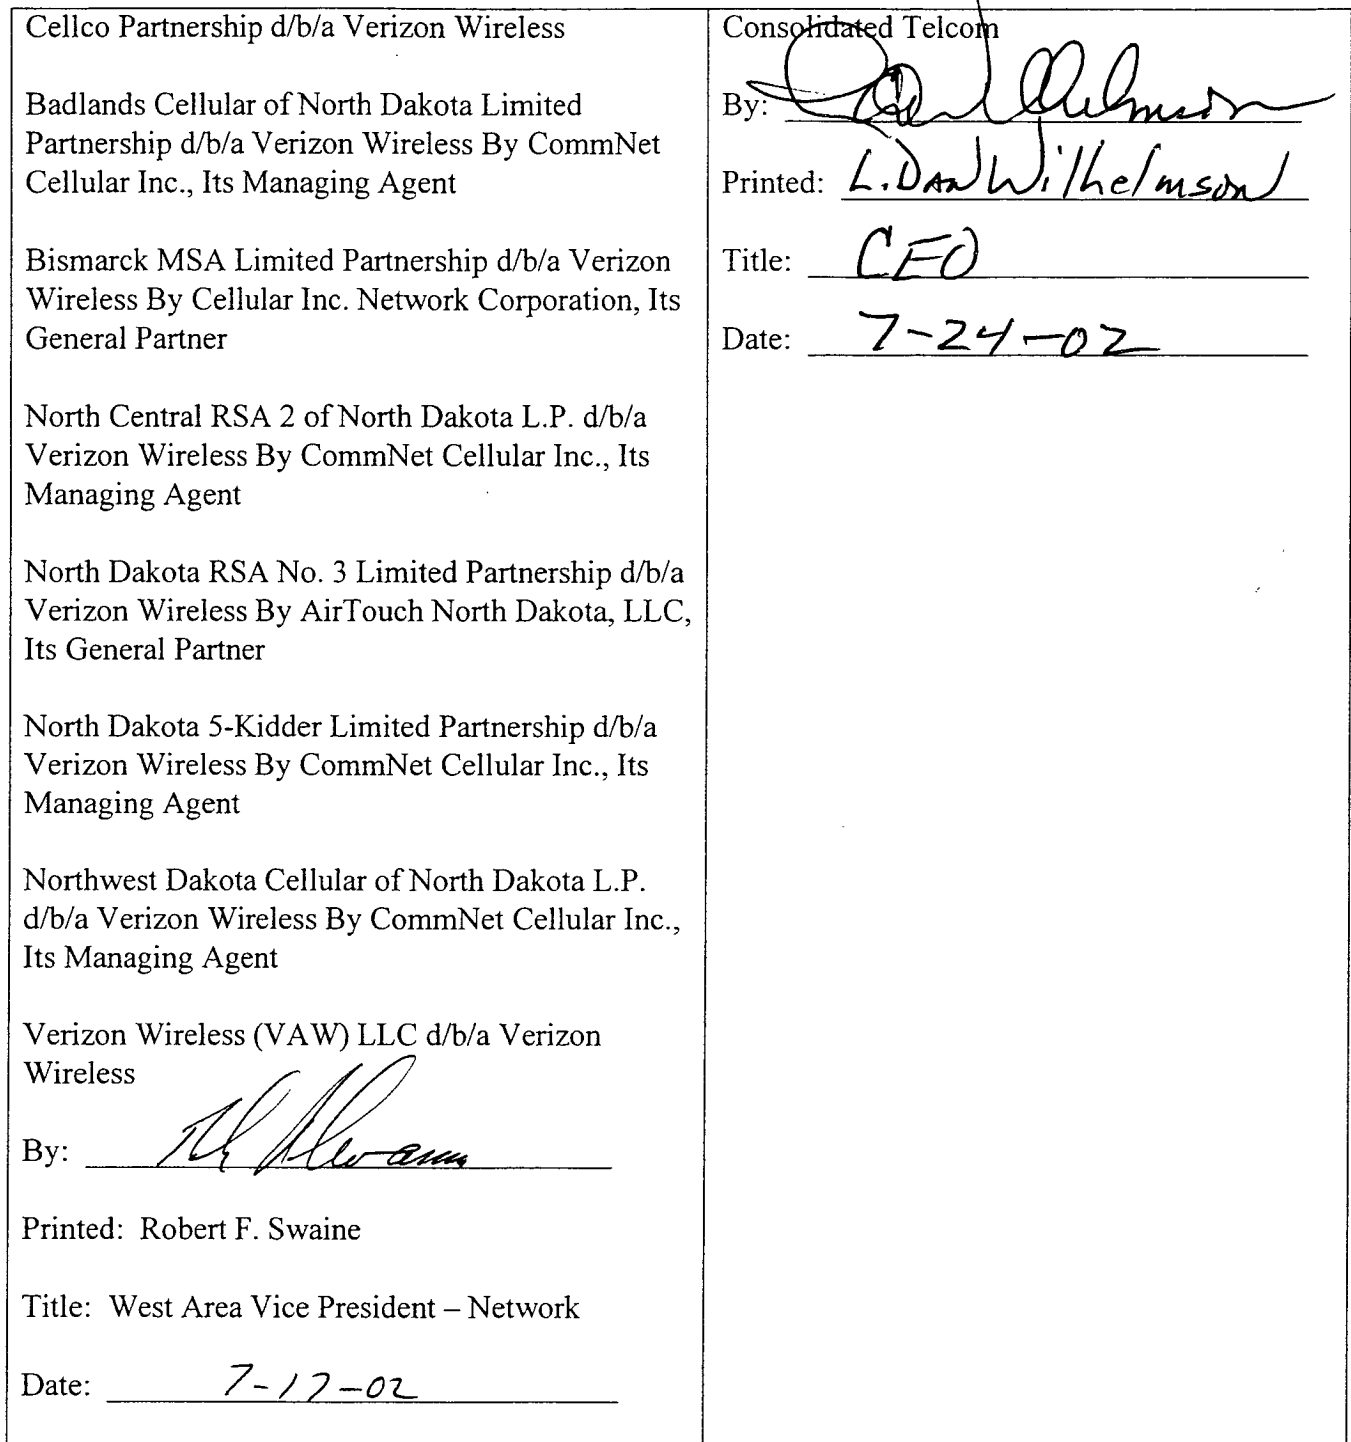 Cellco Partnership d/b/a Verizon Wireless
Badlands Cellular of North Dakota Limited
Partnership d/b/a Verizon Wireless By CommNet
Cellular Inc., Its Managing Agent
Bismarck MSA Limited Partnership d/b/a Verizon
Wireless By Cellular Inc. Network Corporation, Its
General Partner
North Central RSA 2 of North Dakota L.P. d/b/a
Verizon Wireless By CommNet Cellular Inc., Its
Managing Agent
North Dakota RSA No. 3 Limited Partnership d/b/a
Verizon Wireless By AirTouch North Dakota, LLC,
Its General Partner
North Dakota 5-Kidder Limited Partnership d/b/a
Verizon Wireless By CommNet Cellular Inc., Its
Managing Agent
Northwest Dakota Cellular of North Dakota L.P.
d/b/a Verizon Wireless By CommNet Cellular Inc.,
Its Managing Agent
Verizon Wireless (VAW) LLC d/b/a Verizon
Wireless
By:
Printed: Robert F. Swaine
Title: West Area Vice President – Network
Date: 7-17-02
Consolidated Telcom
By:
Printed: L. Dan Wilhelmson
Title: CEO
Date: 7-24-02